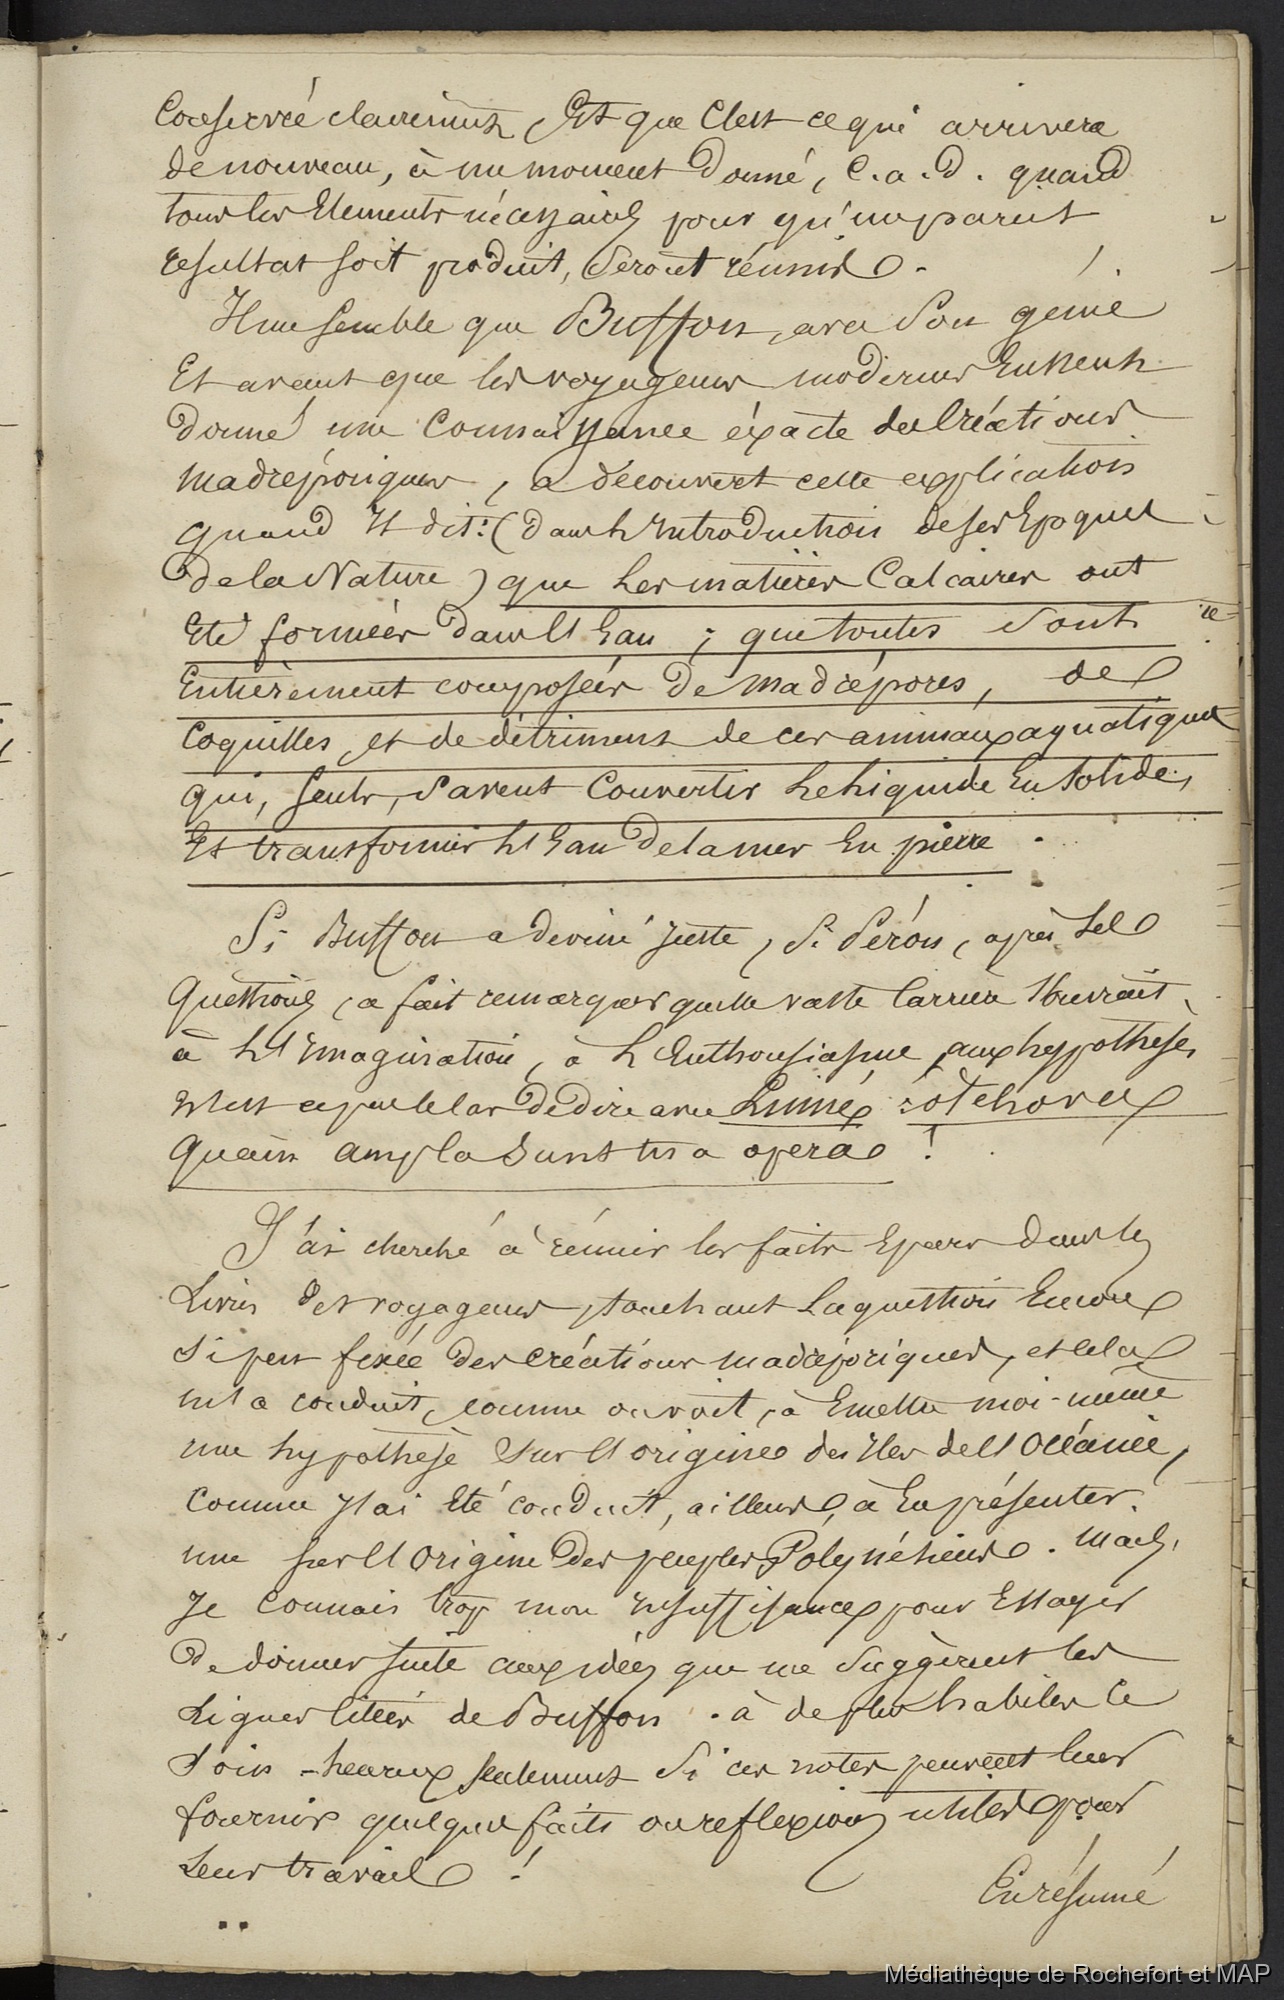 conservée clairement, Et que C'est ce qui arrivera
de nouveau, à un moment donné, c.a.d. quand
tous les Elements nécessaires pour qu'un pareil
resultat soit produit, Seront réunis.
Il me semble que Buffon, avec Son génie
Et avant que les voyageurs modernes Eussent
donné une Connaissance éxacte des Créations
madréporiques, a découvert cette explication
quand Il dit: (dans l'Introduction de ses Epoques
de la Nature) que Les matières Calcaires ont
Eté formées dans l'Eau ; que toutes Sont
Entièrement composées de Madrépores, de
Coquilles, et de détriments de ces animaux aquatiques
qui, Seuls, Savent Convertir Le Liquide En Solide,
Et transformer L'Eau de la mer En pierre.
Si Buffon a deviné juste, Si Péron, après Les
Questions, a fait remarquer quelle vaste Carrière S'ouvrait
à L'Imagination, à L'Enthousiasme, aux hypothèses,
n'est ce pas le Cas de dire avec Linné,
Quam ampla sunt tua opera !
J'ai cherché à réunir les faits Epars dans les
Livres des voyageurs, touchant La question Encore
Si peu fixée des créations madréporiques, et cela
m'a conduit, comme on voit, à Emettre moi-même
une hypothèse Sur l'origine des Iles de l'Océanie,
Comme J'ai Eté conduit, ailleurs, à En présenter
une sur l'Origine des peuples Polynésiens. Mais,
Je Connais trop mon insuffisance pour Essayer
De donner suite aux idées que me Suggèrent les
Lignes citées de Buffon. à de plus habiles Ce
Soin - heureux seulement Si ces notes peuvent leur
fournir quelques faits ou reflexions utiles pour
Leur travail !
En résumé
Médiathèque de Rochefort et MAP